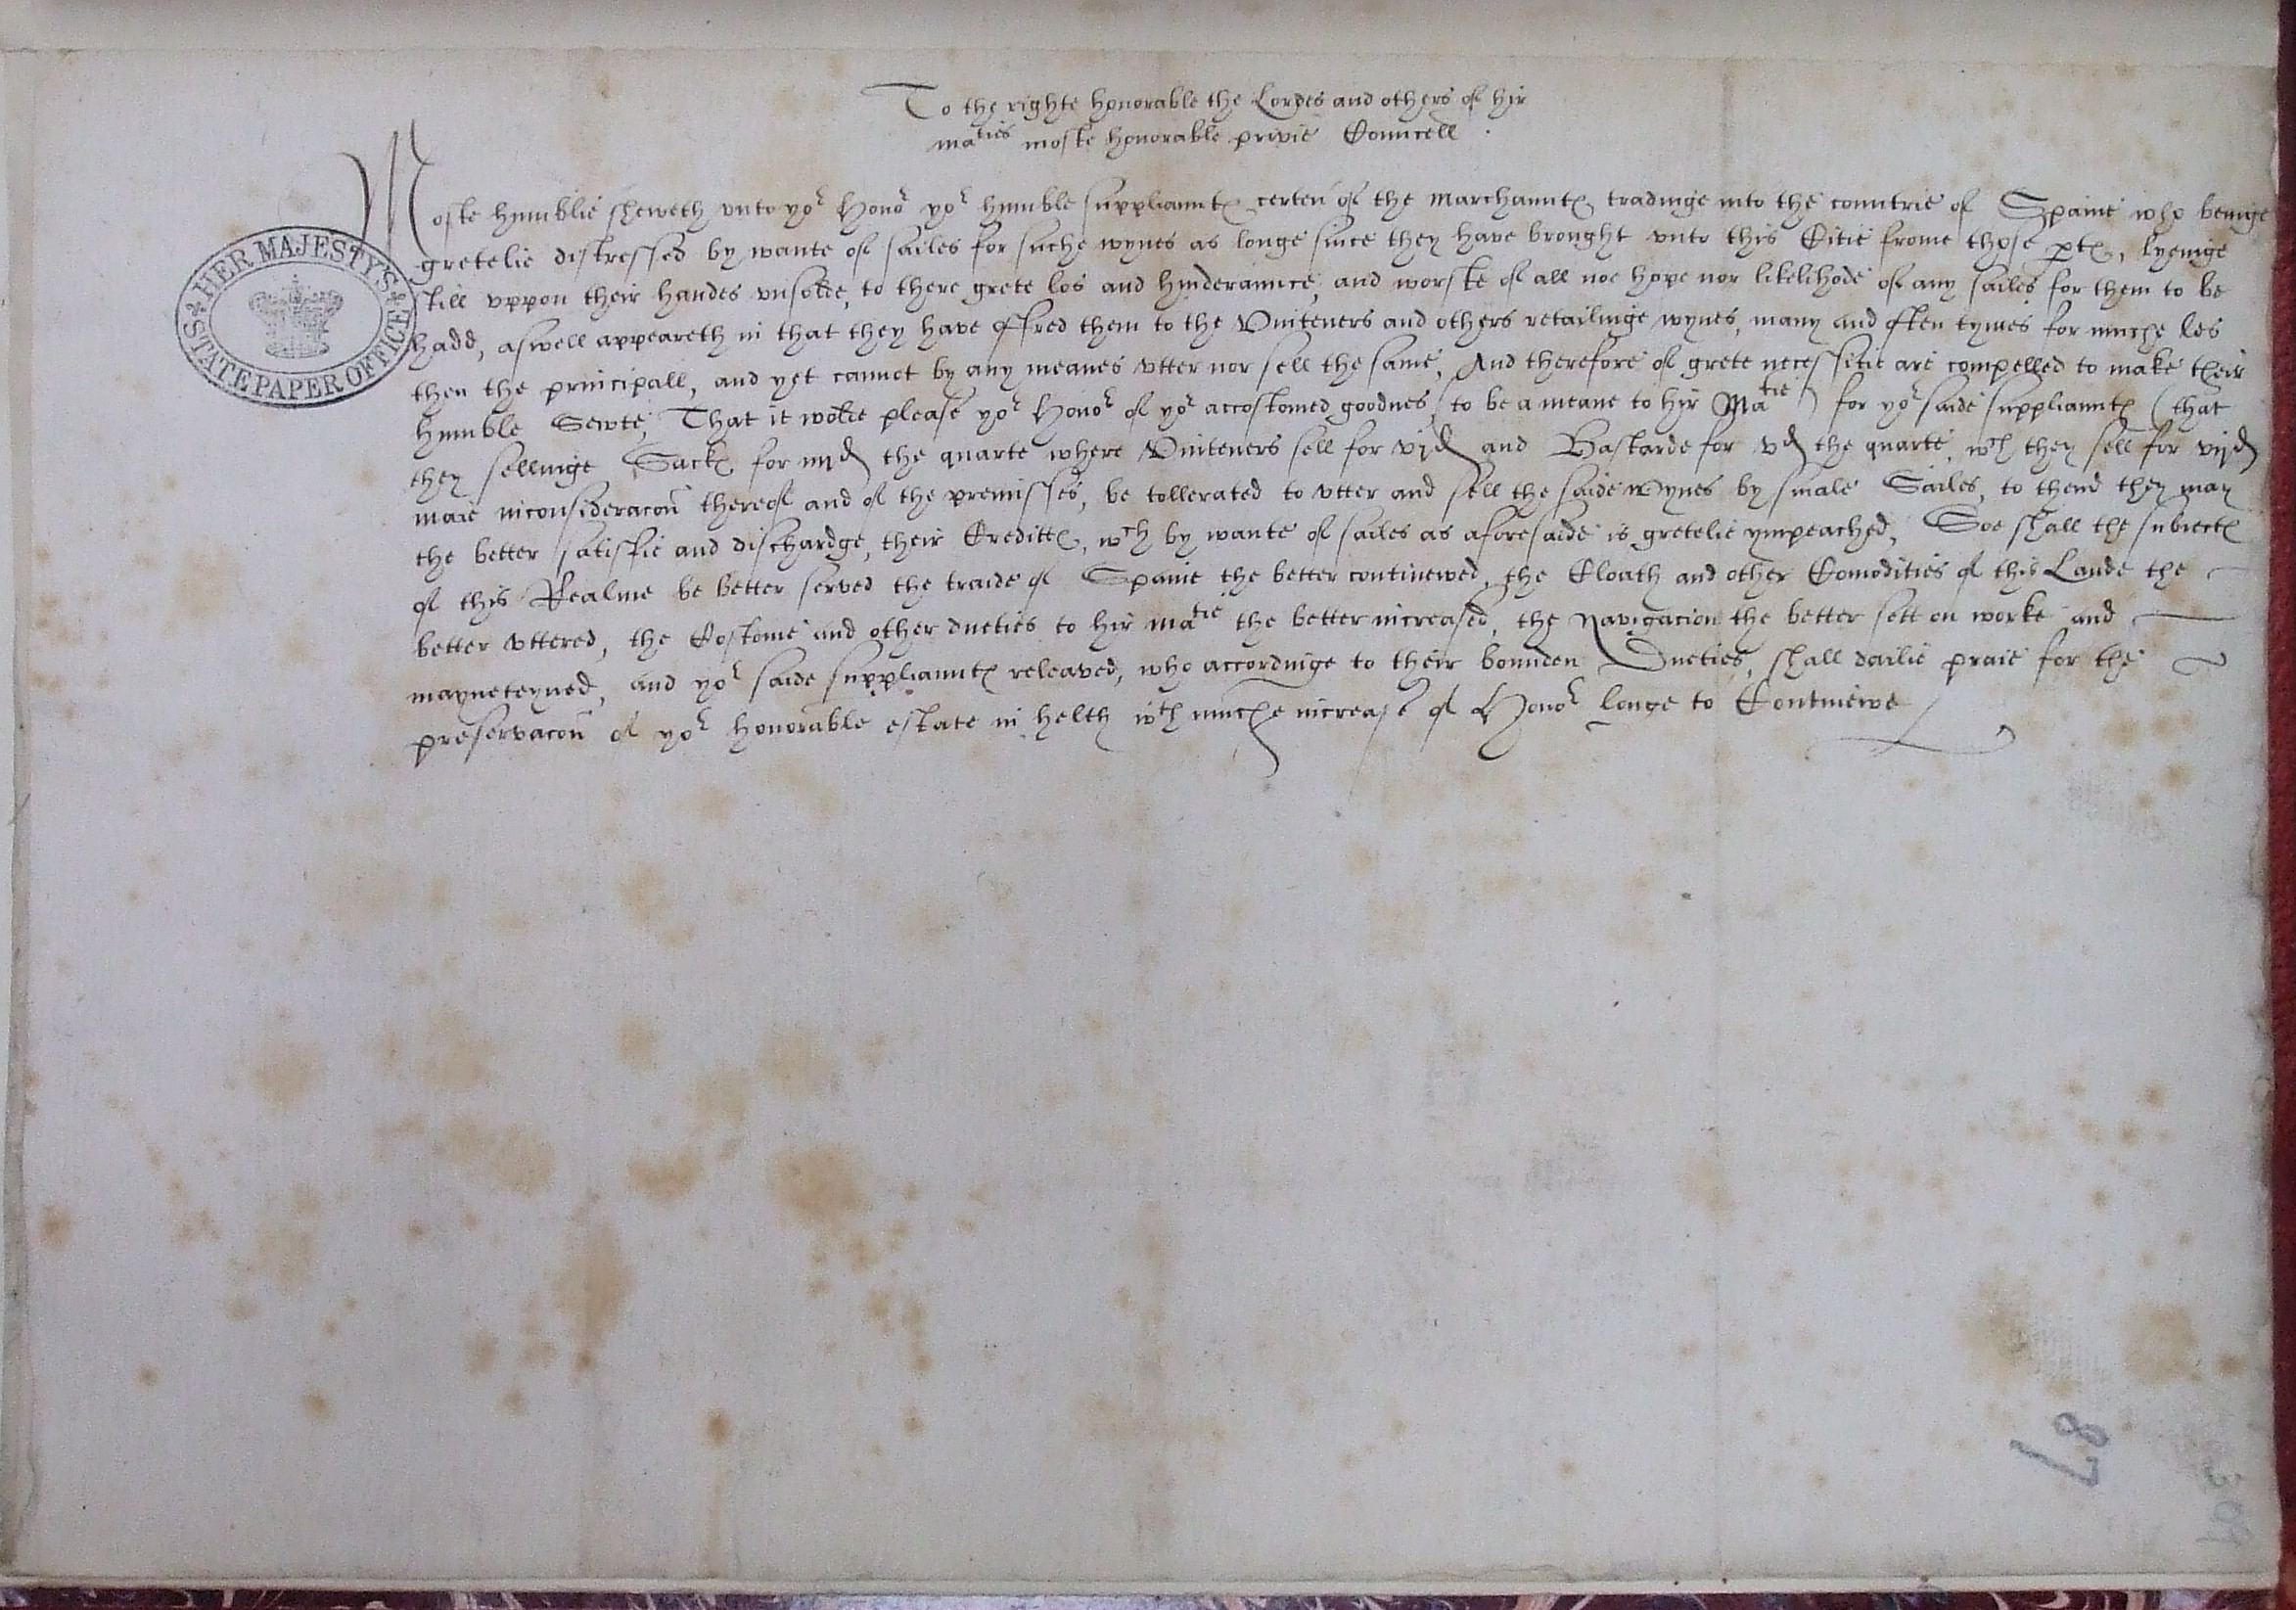 To the righte honorable the Lordes and others of hir
maties moste honorable privie Councell .
Moste humblie sheweth vnto yor Honor yor humble suppliauntes certen of the marchauntes tradinge into the countrie of Spaine who beinge
gretelie distressed by wante of sailes for suche wynes as longe since they have brought vnto this Citie frome those ptes, lyeinge
still vppon their handes vnsolde, to there grete los and hinderaunce, and worste of all noe hope nor likelihode of any sailes for them to be
hadd, aswell appeareth in that they have offred them to the Vinteners and others retailinge wynes, many and often tymes for muche les
then the principall, and yet cannot by any meanes vtter nor sell the same, And therefore of grete necessitie are compelled to make their
humble Sewte, That it wolde please yor Honors of yor accostomed goodnes, to be a meane to hir Matie for yor saide suppliauntes (that
they sellinge Sackes for iiijd the quarte where Vinteners sell for vjd and Bastarde for vd the quarte, wch they sell for vijd
maie inconsideracon thereof and of the premisses, be tollerated to vtter and sell the saide wynes by smale Sailes, to thend they may
the better satisfie and dischardge, their Credittes, wch by wante of sailes as aforesaide is gretelie ympeached, Soe shall the subiectes
of this Realme be better served the traide of Spaine the better continewed, the Cloath and other Comodities of this Lande the
better vttered, the Costome and other dueties to hir matie the better increased, the Navigacion the better sett on worke and
mayneteyned, and yor saide suppliauntes releaved, who accordinge to their bounden Dueties, shall dailie praie for the
preservacon of yor honorable estate in helth wth muche increase of Honor longe to Continewe
HER MAJESTY'S
STATE PAPER OFFICE
87